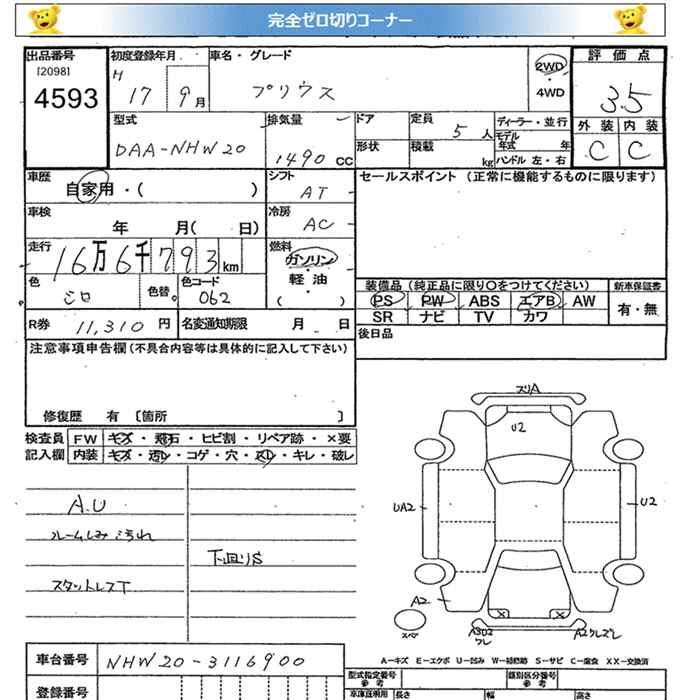 完全ゼロ切りコーナー
出品番号
[2098]
4593
初度登録年月
H 17 9月
車名・グレード
プリウス
2WD
・
4WD
評価点
3.5
外装 内装
C C
型式
DAA-NHW20
排気量
1490 CC
ドア
形状
定員
5人
積載
kg
ディーラー・並行
モデル
年式 年
ハンドル 左・右
車歴
自家用・( )
シフト
AT
セールスポイント (正常に機能するものに限ります)
車検
年 月( 日)
冷房
AC
走行
16万6千793km
燃料
ガソリン
・
軽油
・
( )
色
シロ
色替。
色コード
062
装備品 (純正品に限り〇をつけてください)
新車保証書
PS PW ABS エアB AW
SR ナビ TV カワ
有・無
R券 11,310 円
名変通知期限 月 日
後日品
注意事項申告欄 (不具合内容等は具体的に記入して下さい)
修復歴 有 〔箇所 〕
検査員
記入欄
FW キズ・飛石・ヒビ割・リペア跡・×要
内装 キズ・汚レ・コゲ・穴・スレ・キレ・破レ
A.U
ルームしみ汚れ
下廻りS
スタットレスT
スリA
U2
UA2
U2
A2
スペア
A3U2
ワレ
A2クレズレ
A－キズ E－エクボ U－凹み W－補修跡 S－サビ C－腐食 XX－交換済
車台番号
NHW20-3116900
登録番号
型式指定番号
参考
類別区分番号
参考
車庫証明用
長さ
幅
高さ